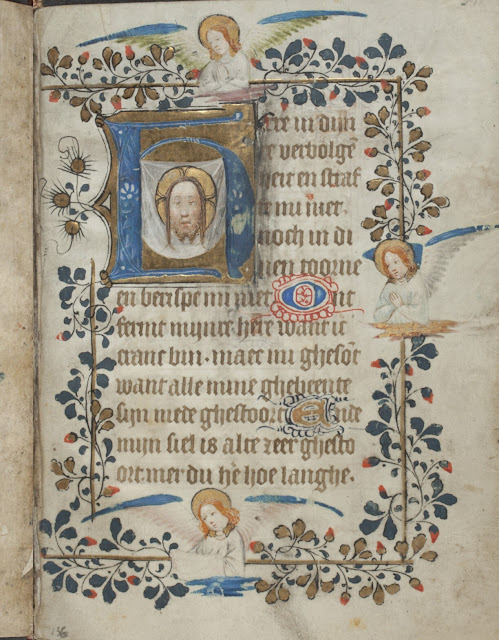 Here in dijn
re vervolgē
heit en straf
fe mi niet.
noch in di
nen toorne
en berispe mi niet Ont
fermt mijnre here want ic
cranc bin. maec mi ghesōt
want alle mine ghebeente
sijn mede ghestoort Ende
mijn siel is alte zeer ghesto
ort. mer du he hoe langhe.